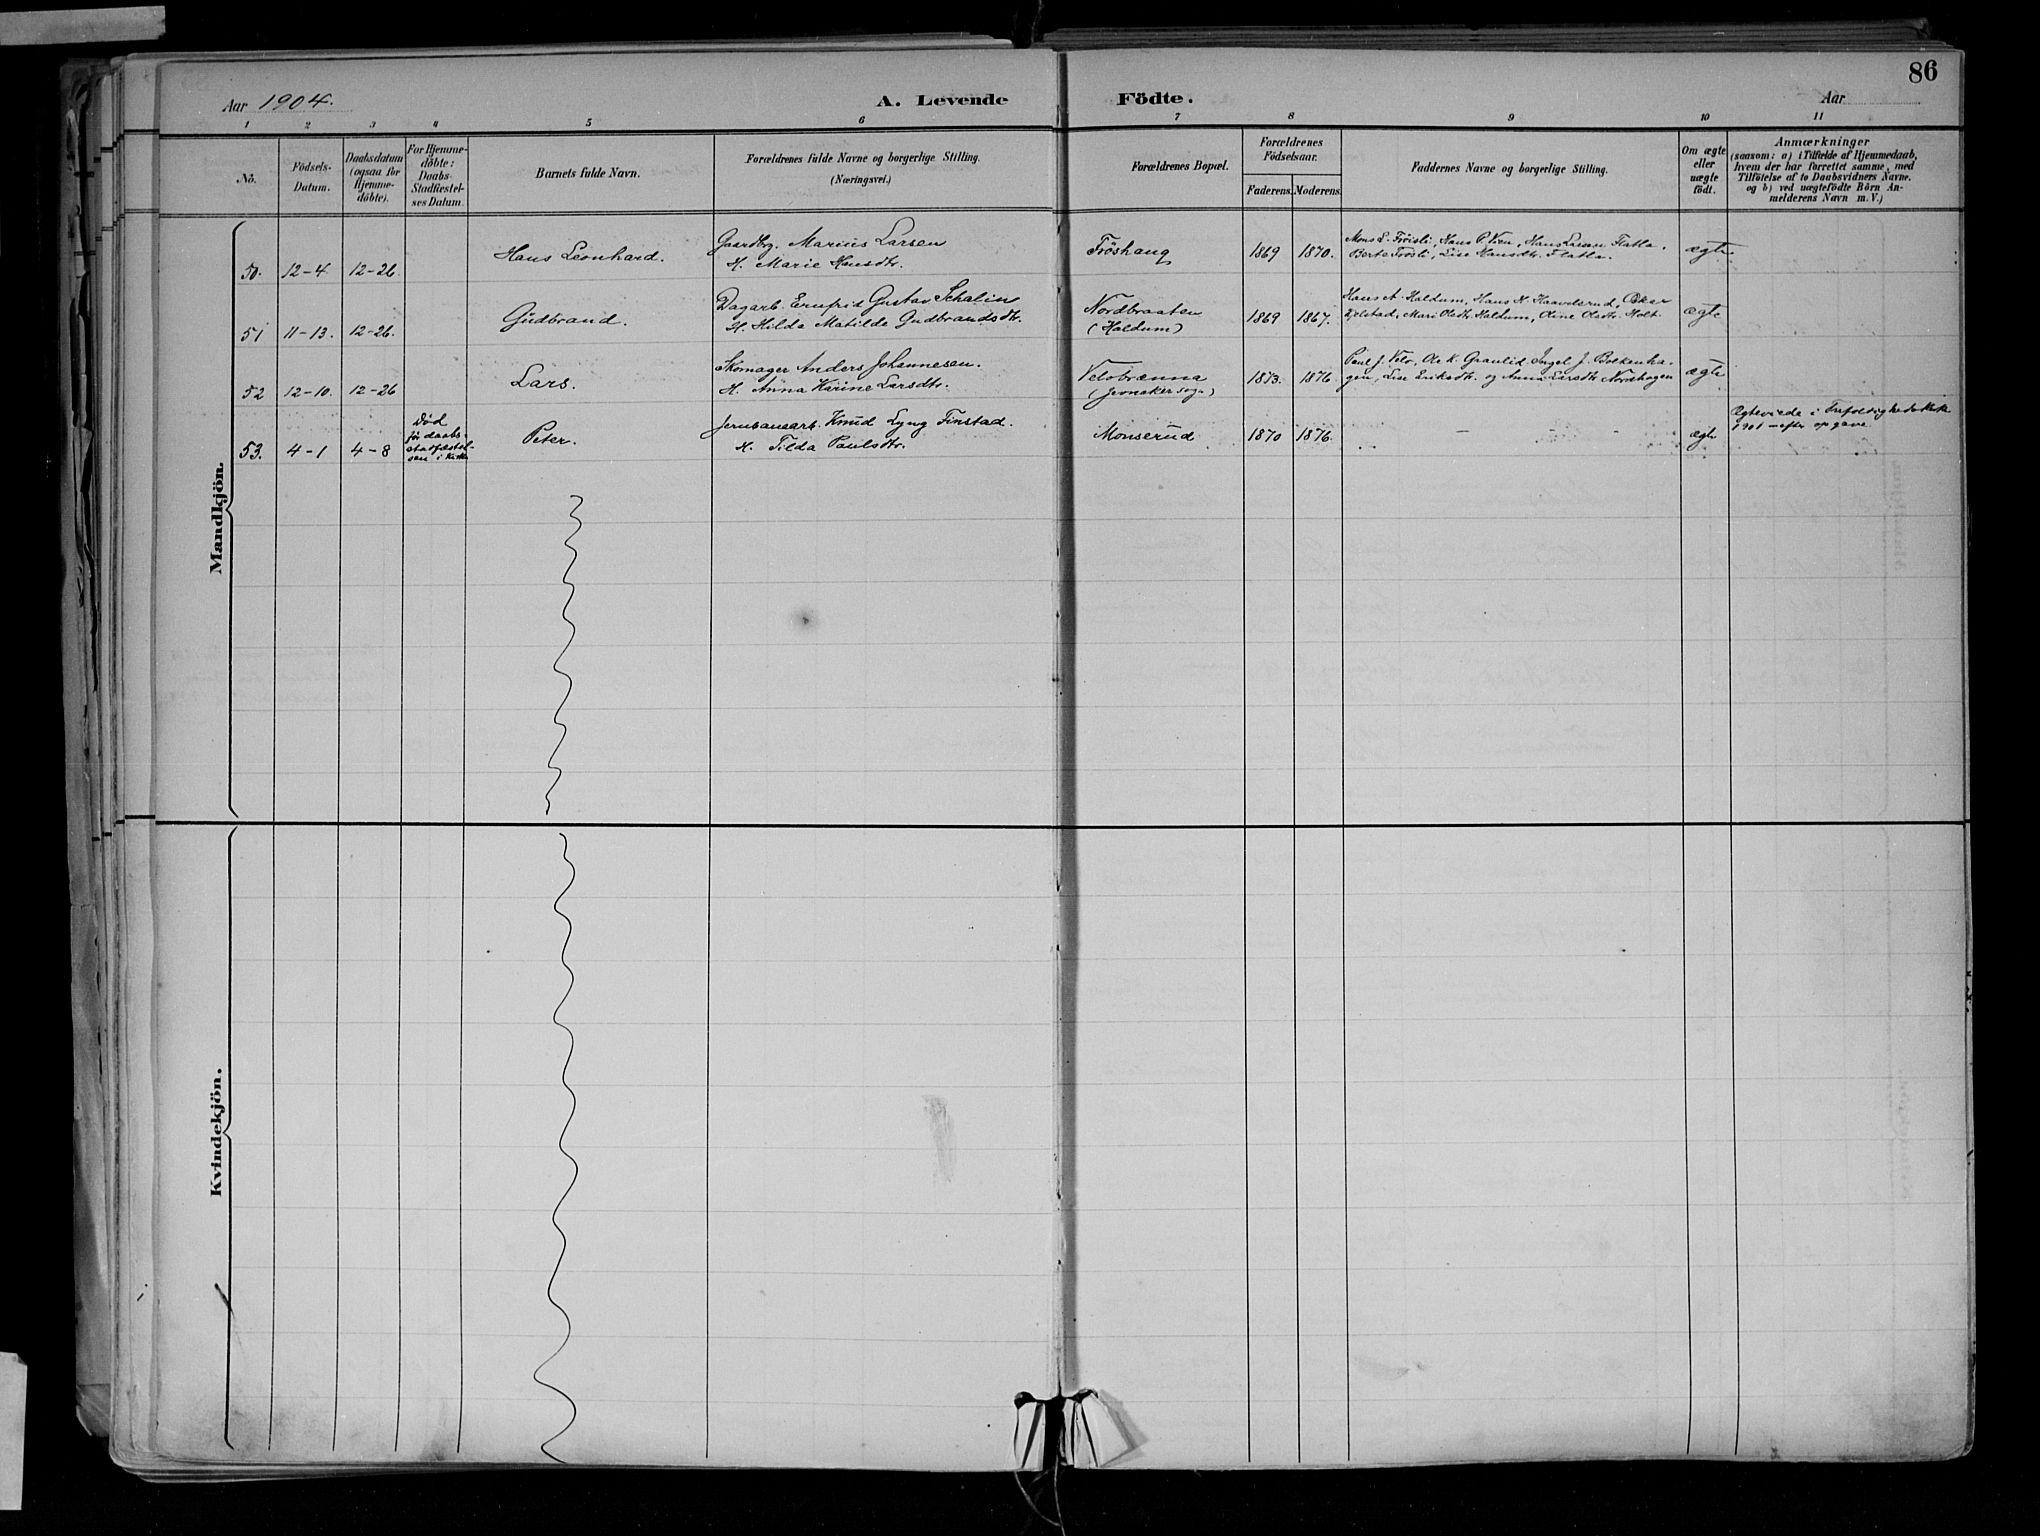 86
Aar 1904.
A. Levende
Födte.
Aar
1
2
3
4
5
6
7
8
9
10
11
No.
Födsels-
Datum.
Daabsdatum
(ogsaa for
Hjemme-
döbte).
For Hjemme-
döbte:
Daabs-
Stadfæstel-
ses Datum.
Barnets fulde Navn.
Forældrenes fulde Navne og borgerlige Stilling.
(Næringsvei.)
Forældrenes Bopæl.
Forældrenes
Födselsaar.
Faderens.
Moderens.
Faddernes Navne og borgerlige Stilling.
Om ægte
eller
uægte
födt.
Anmærkninger
(saasom: a) i Tilfælde af Hjemmedaab,
hvem der har forrettet samme, med
Tilföielse af to Daabsvidners Navne.
og b) ved uægtefödte Börn An-
melderens Navn m. V.)
Mandkjön.
50. 12-4 12-26
Hans Leonhard.
Gaardbrg. Marius Larsen
H. Marie Hansdtr.
Fröshaug
1869 1870.
Mons L. Fröisli, Hans P. Vien, Hans Larsen Flatla.
Berte Fröisli, Lise Hansdtr. Flatla.
ægte
51 11-13. 12-26.
Gudbrand.
Dagarb. Ernfrid Gustav Schalin
H. Hilda Matilde Gudbrandsdtr.
Nordbraaten
(Haldum)
1869 1867.
Hans A. Haldum, Hans H. Haavderud, Oskar
Kjelstad, Mari Olsdtr. Haldum, Oline Olsdtr. Holt.
ægte
52 12-10. 12-26
Lars.
Skomager Anders Johannesen.
H. Anna Karine Larsdtr.
Velobrænna
(Jevnaker sogn)
1873. 1876
Paul J. Velo, Ole K. Granlid, Ingel J. Bolkenha-
gen, Lise Eriksdtr. og Anna Larsdtr. Nordhagen
ægte
53. 4-1 4-8
Död
för daabs-
stadfæstel-
sen i kirke
Peter.
Jernbanearb. Knud Lyng Finstad.
H. Tilda Paulsdtr.
Monserud
1870 1876.
- - - -
ægte
Ægteviede i Trefoldighedskirke
1901 - efter opgave
Kvindekjön.